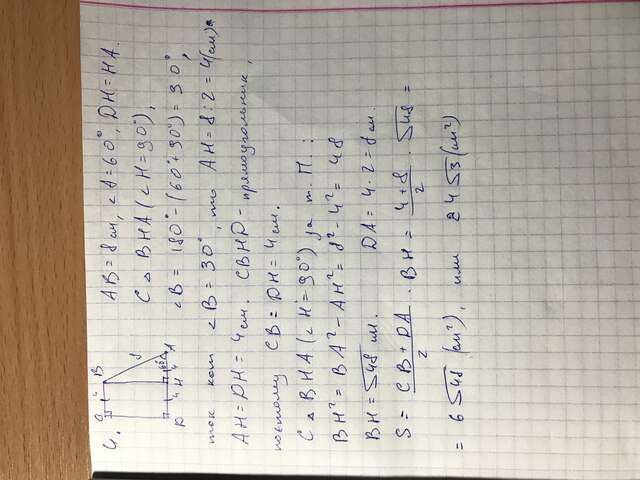 4. AB = 8 см, ∠A = 60°, DH = HA.
C B 4 8 D 4 H 4 60° A
С △ BHA (∠H = 90°),
∠B = 180° - (60° + 90°) = 30°,
так как ∠B = 30°, то AH = 8 : 2 = 4 (см).
AH = DH = 4 см. CBHD - прямоугольник,
поэтому CB = DH = 4 см.
С △ BHA (∠H = 90°) за т. П. :
BH² = BA² - AH² = 8² - 4² = 48
BH = √48 см. DA = 4 · 2 = 8 см.
S = (CB + DA)/2 · BH = (4 + 8)/2 · √48 =
= 6√48 (см²), или 24√3 (см²)